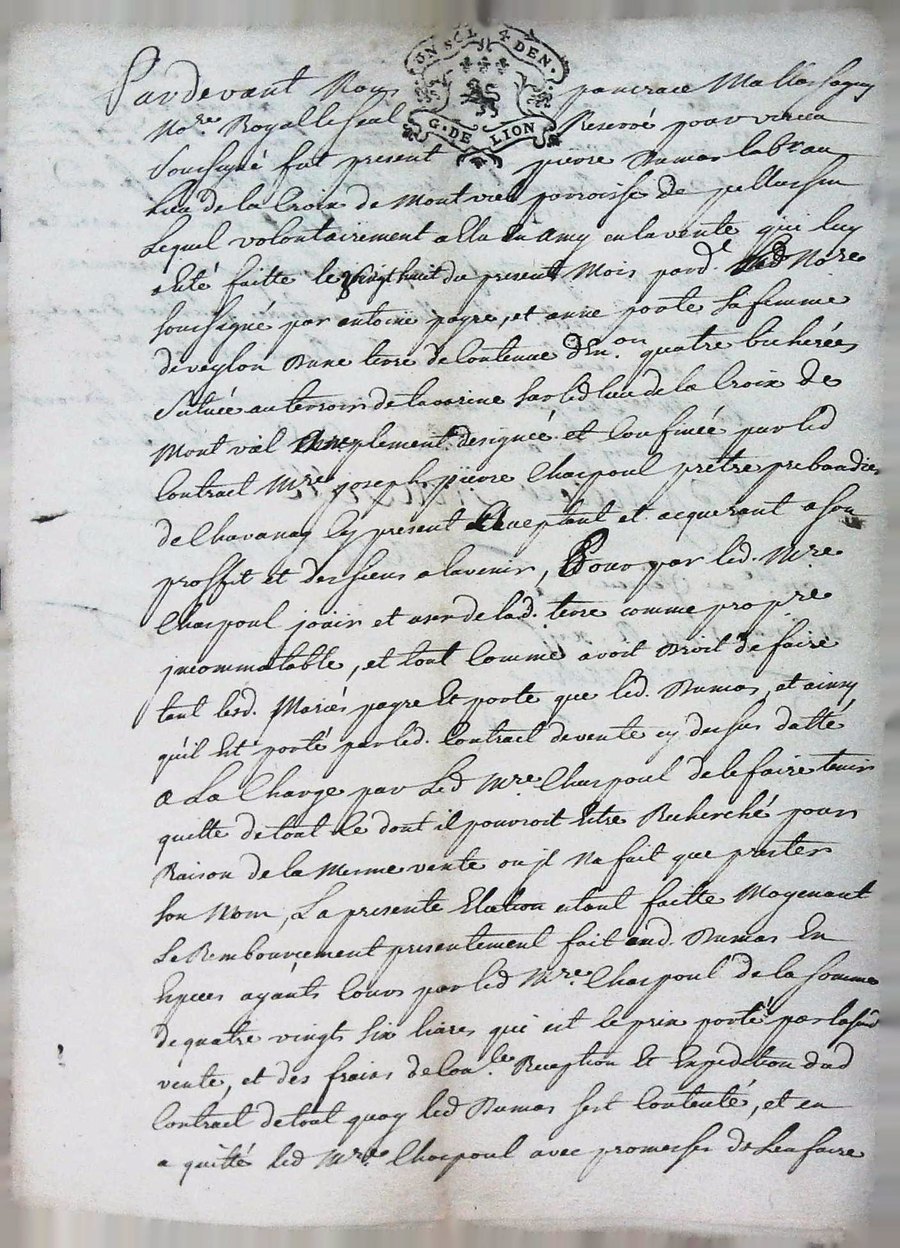 ON SCL 4 DEN.
G. DE LION
Pardevant Nous pancrace Mathias
No.re Royal le seul Reservé pour virieu
Soussigné fut present pierre Dumas lab
lieu de la Croix de Montviol parroisse de pellussin
Lequel volontairement a Elu En amy en la vente qui luy
a eté faitte le vingt huit du present Mois pard.t led No.re
soussigné par antoine payre, et anne poote sa femme
de veylon Dune terre de Contenue d'En.on quatre bicherées
Située au terroir de la varine sur led lieu de la Croix de
Mont viol Amplement designée et Confinée par led
Contract M.re joseph pierre Charpoul prètre prebandier
de Chavanay Cy present acceptant et acquerant a son
proffit et des siens a lavenir, Pour par led. M.re
Charpoul jouir et user de lad. terre comme propre
jncommutable, et tout Comme avoit Droit de faire
tant lesd. Mariés payre Et poote que led. Dumas, et ainsy
qu'il Est porté par led. Contract de vente cy dessus datté
a La Charge par Led M.re Charpoul de le faire tenir
quitte de tout Ce dont il pourroit Estre Recherché pour
Raison de la Mesme vente ou jl Na fait que prester
son Nom, La presente Election etant faitte Moyenant
Le Remboursement presentement fait aud. Dumas En
Especes ayants Cours par led M.re Charpoul de la somme
de quatre vingts six livres qui est le prix porté par lasud
vente, et des frais de Con.le Reception Et Expedition dud
Contract de tout quoy led Dumas sest Contenté, et en
a quitté led M.re Charpoul avec promesses de Len faire